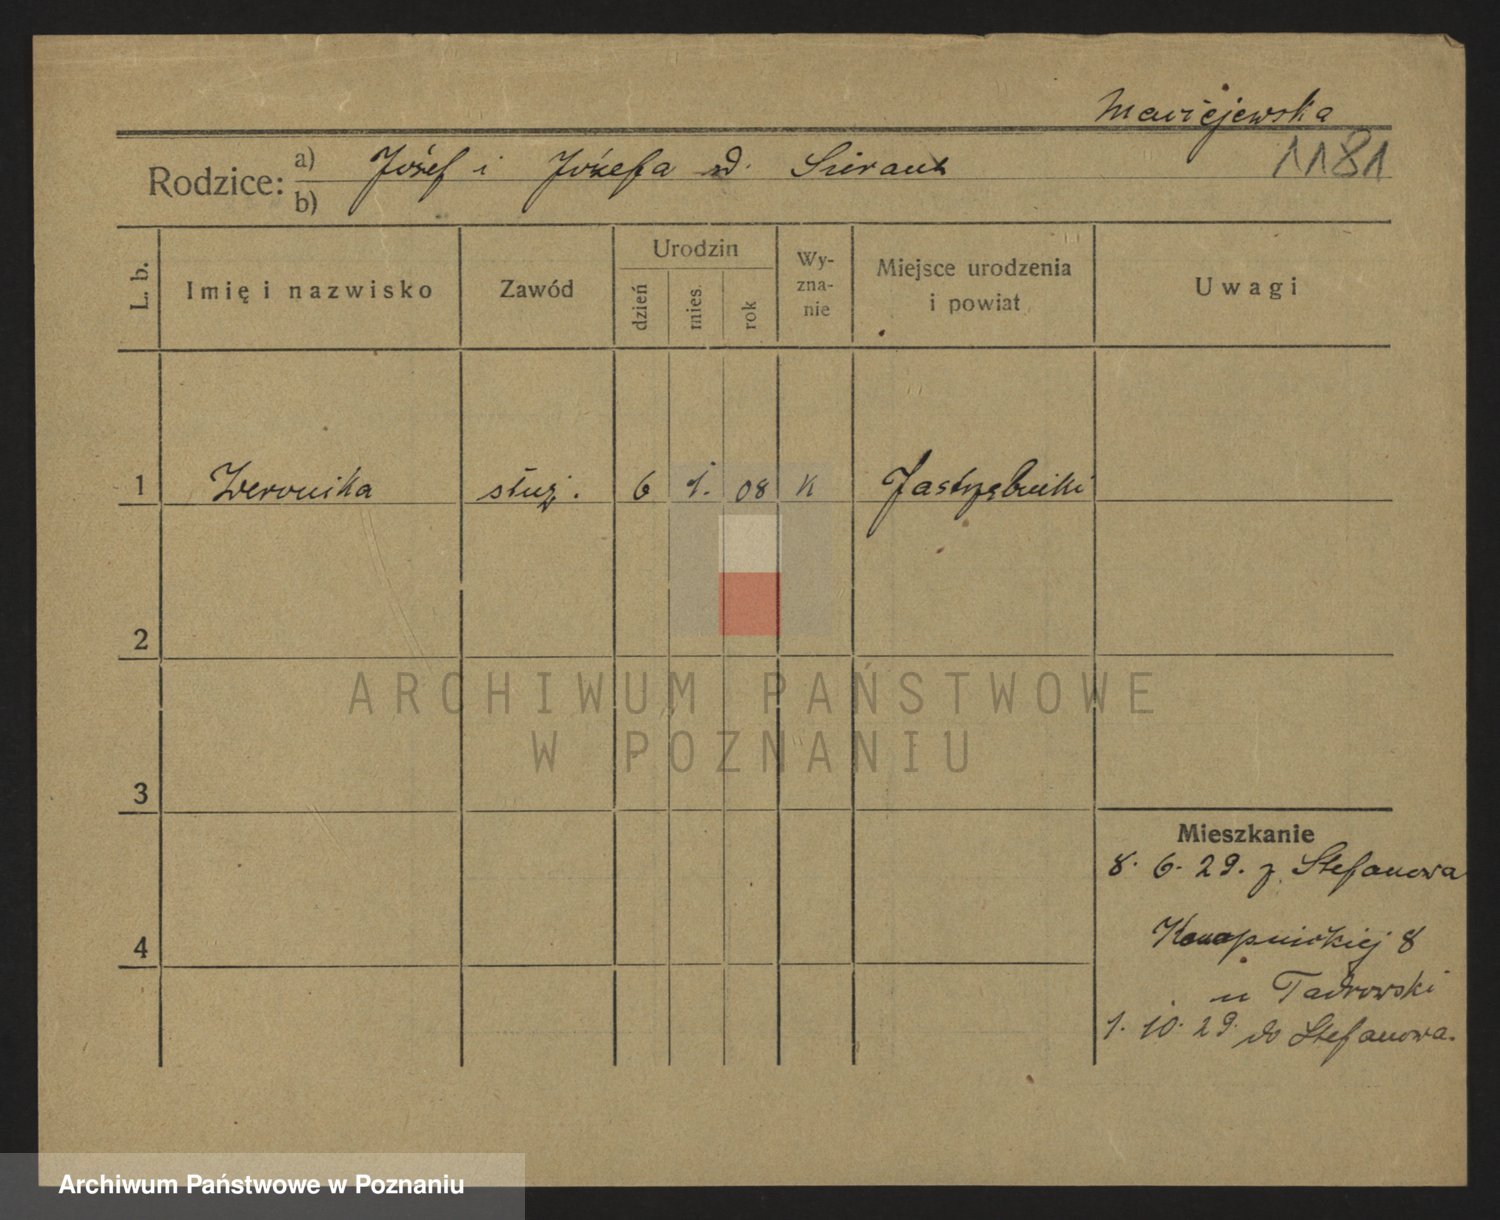 Maciejewska
1181
Rodzice: a) Józef i Józefa d. Sierant
b)
L. b.
Imię i nazwisko
Zawód
Urodzin
dzień
mies.
rok
Wy-
zna-
nie
Miejsce urodzenia
i powiat
Uwagi
1 Weronika służ. 6 1. 08 K Jastrzębniki
2
3
4
Mieszkanie
8. 6. 29. z Stefanowa
Konopnickiej 8
u Tadrowski
1. 10. 29. do Stefanowa.
ARCHIWUM PAŃSTWOWE
W POZNANIU
Archiwum Państwowe w Poznaniu